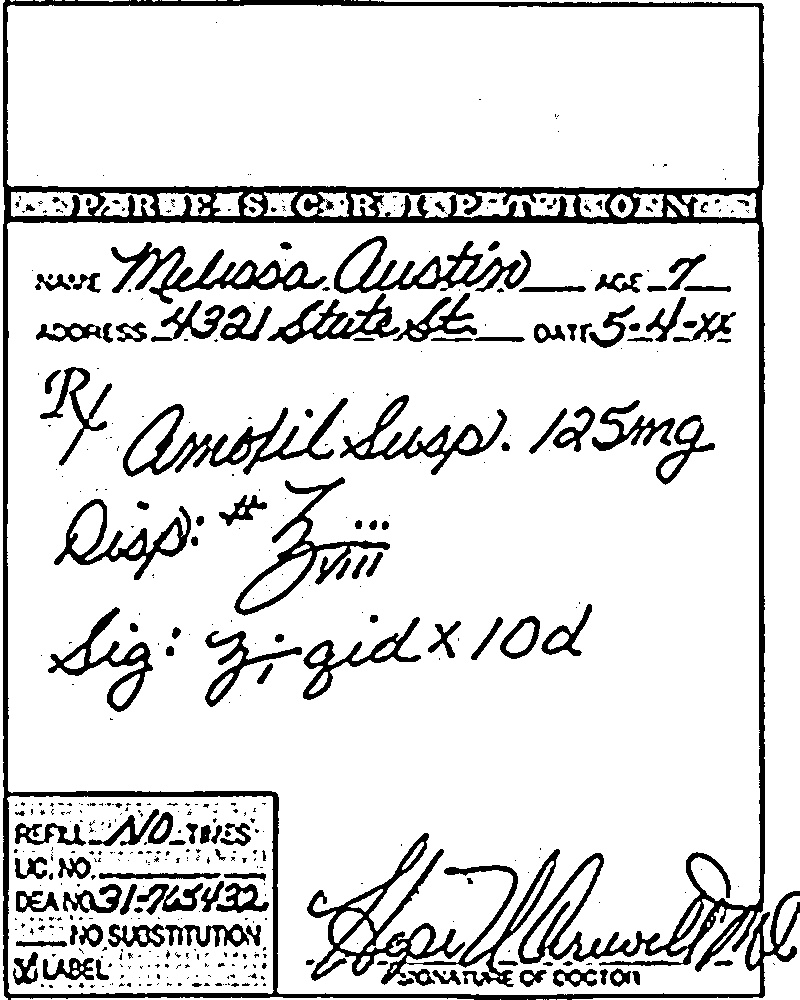 PRESCRIPTION
NAME Melissa Austin AGE 7
ADDRESS 4321 State St. DATE 5-4-XX
Rx Amoxil Susp. 125mg
Disp: # ℥ viii
Sig: ʒ i qid x 10d
REFILL NO TIMES
LIC. NO.
DEA NO. 31-765432
NO SUBSTITUTION
LABEL
MD
SIGNATURE OF DOCTOR